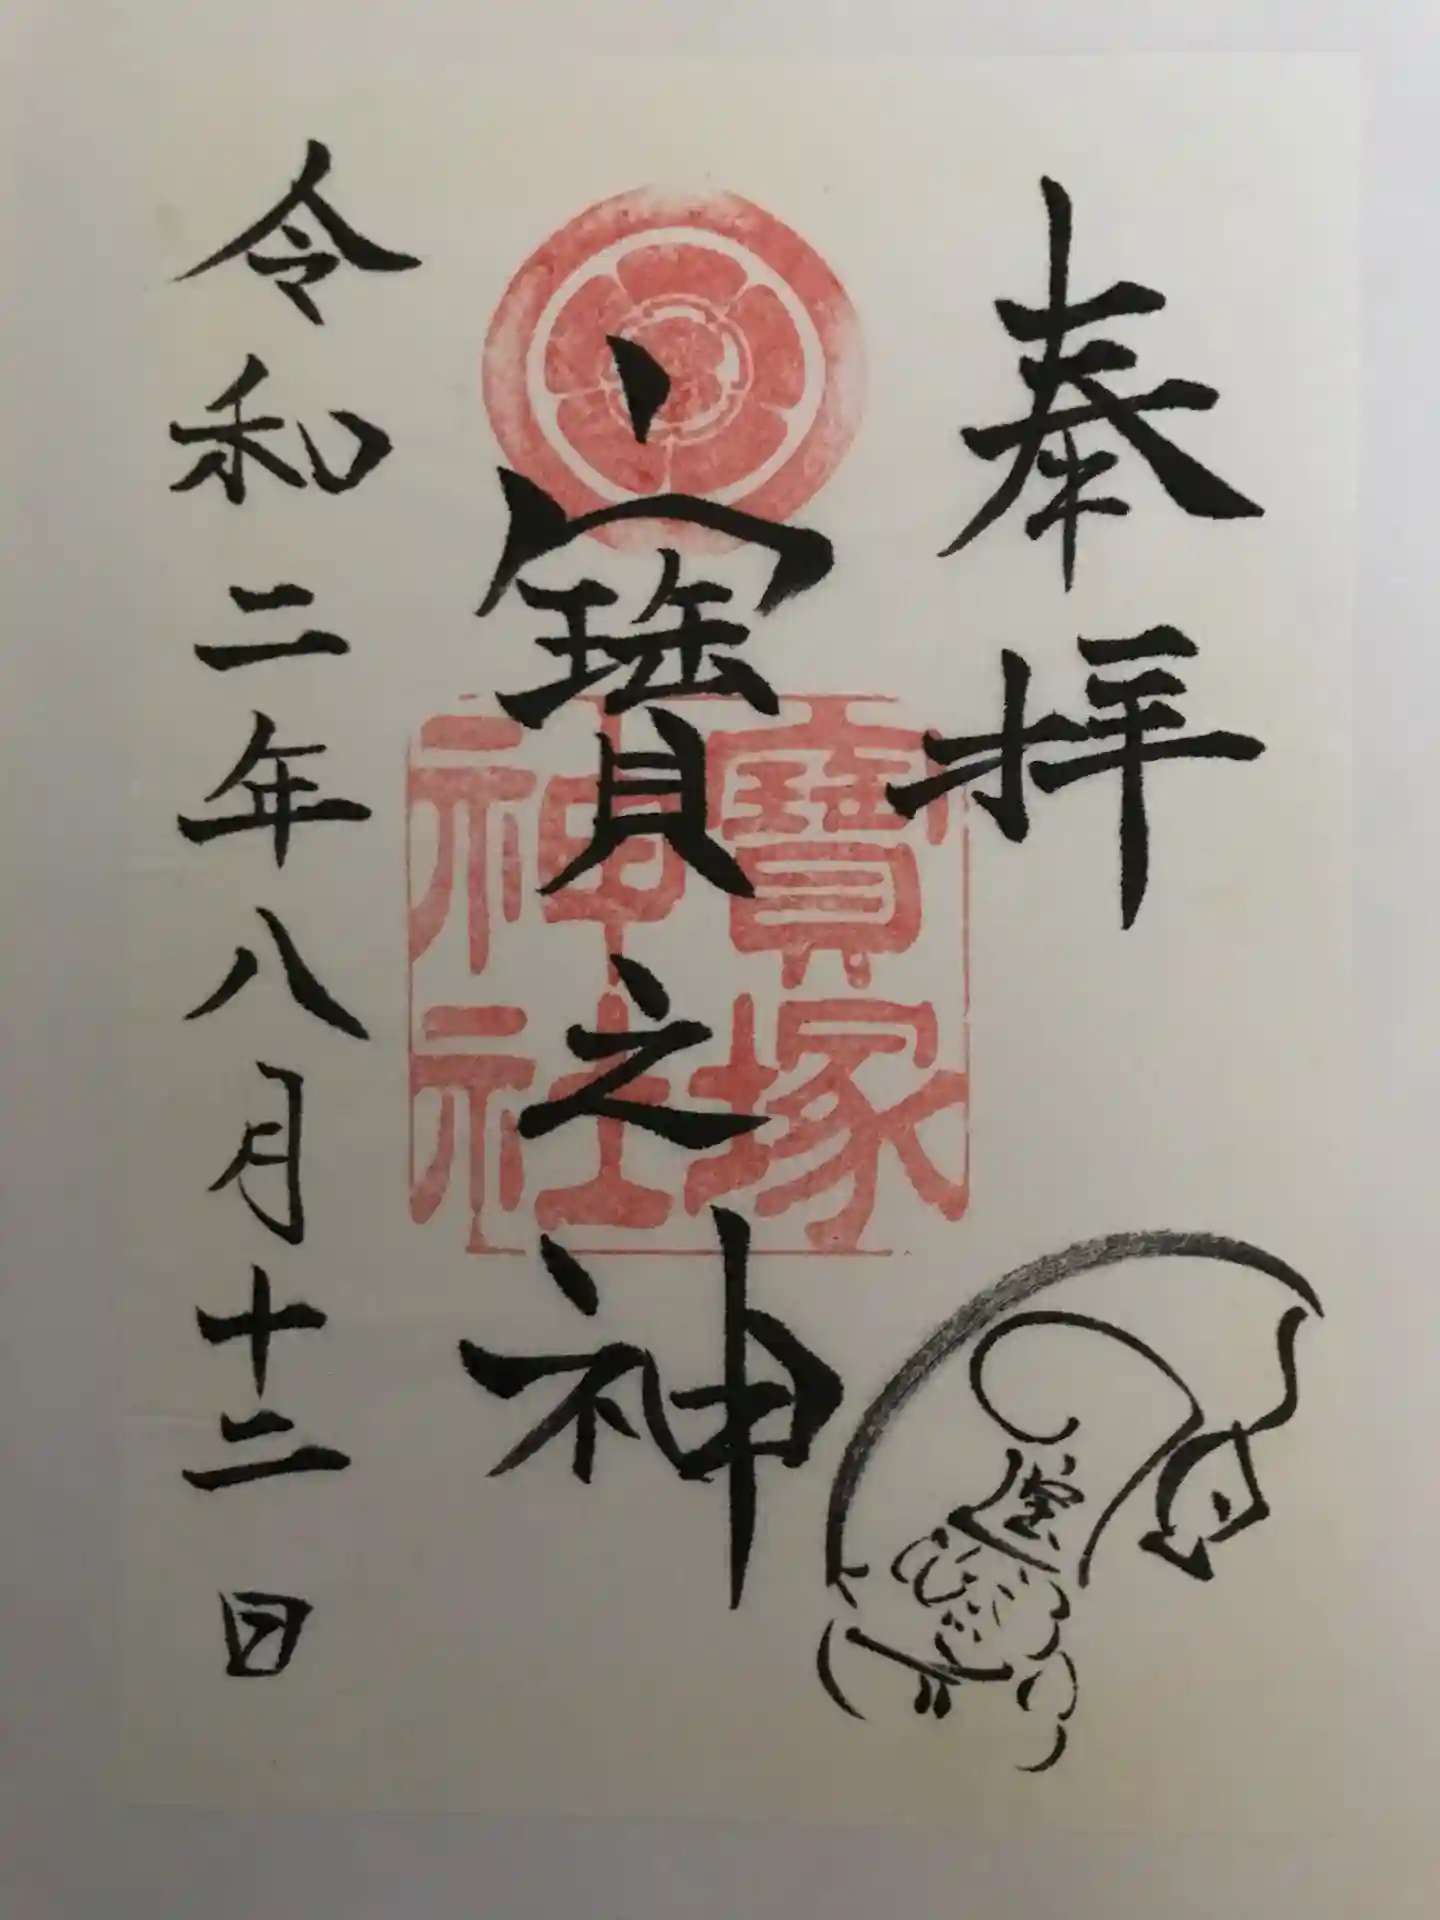 奉拝
寶之神
寶塚
神社
令和二年八月十二日